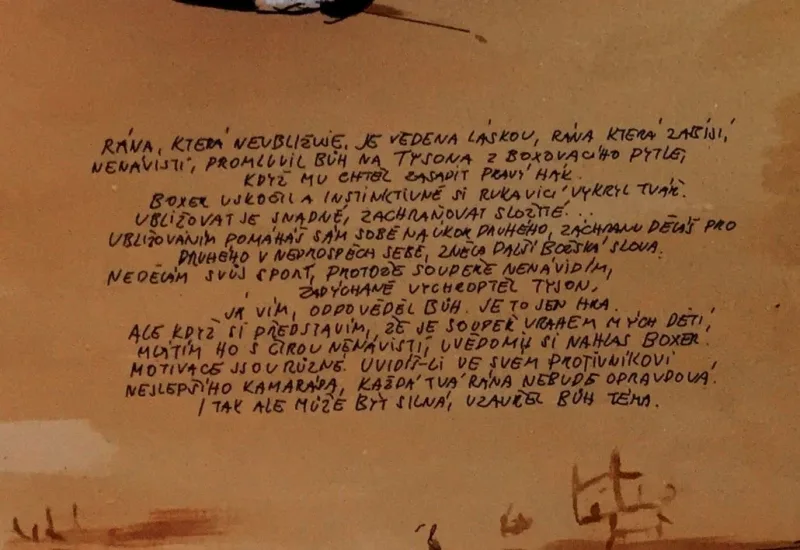 RÁNA, KTERÁ NEUBLIŽUJE, JE VEDENA LÁSKOU, RÁNA KTERÁ ZABÍJÍ,
NENÁVISTÍ, PROMLUVIL BŮH NA TYSONA Z BOXOVACÍHO PYTLE,
KDYŽ MU CHTĚL ZASADIT PRAVÝ HÁK.
BOXER USKOČIL A INSTINKTIVNĚ SI RUKAVICÍ VYKRYL TVÁŘ.
UBLIŽOVAT JE SNADNÉ, ZACHRAŇOVAT SLOŽITÉ...
UBLIŽOVÁNÍM POMÁHÁŠ SÁM SOBĚ NA ÚKOR DRUHÉHO, ZÁCHRANU DĚLÁŠ PRO
DRUHÉHO V NEPROSPĚCH SEBE, ZNĚLA DALŠÍ BOŽSKÁ SLOVA.
NEDĚLÁM SVŮJ SPORT, PROTOŽE SOUPEŘE NENÁVIDÍM,
ZADÝCHANĚ VYCHROPTĚL TYSON.
JÁ VÍM, ODPOVĚDĚL BŮH. JE TO JEN HRA.
ALE KDYŽ SI PŘEDSTAVÍM, ŽE JE SOUPEŘ VRAHEM MÝCH DĚTÍ,
MLÁTÍM HO S ČIROU NENÁVISTÍ, UVĚDOMIL SI NAHLAS BOXER.
MOTIVACE JSOU RŮZNÉ. UVIDÍŠ-LI VE SVÉM PROTIVNÍKOVI
NEJLEPŠÍHO KAMARÁDA, KAŽDÁ TVÁ RÁNA NEBUDE OPRAVDOVÁ.
I TAK ALE MŮŽE BÝT SILNÁ, UZAVŘEL BŮH TÉMA.